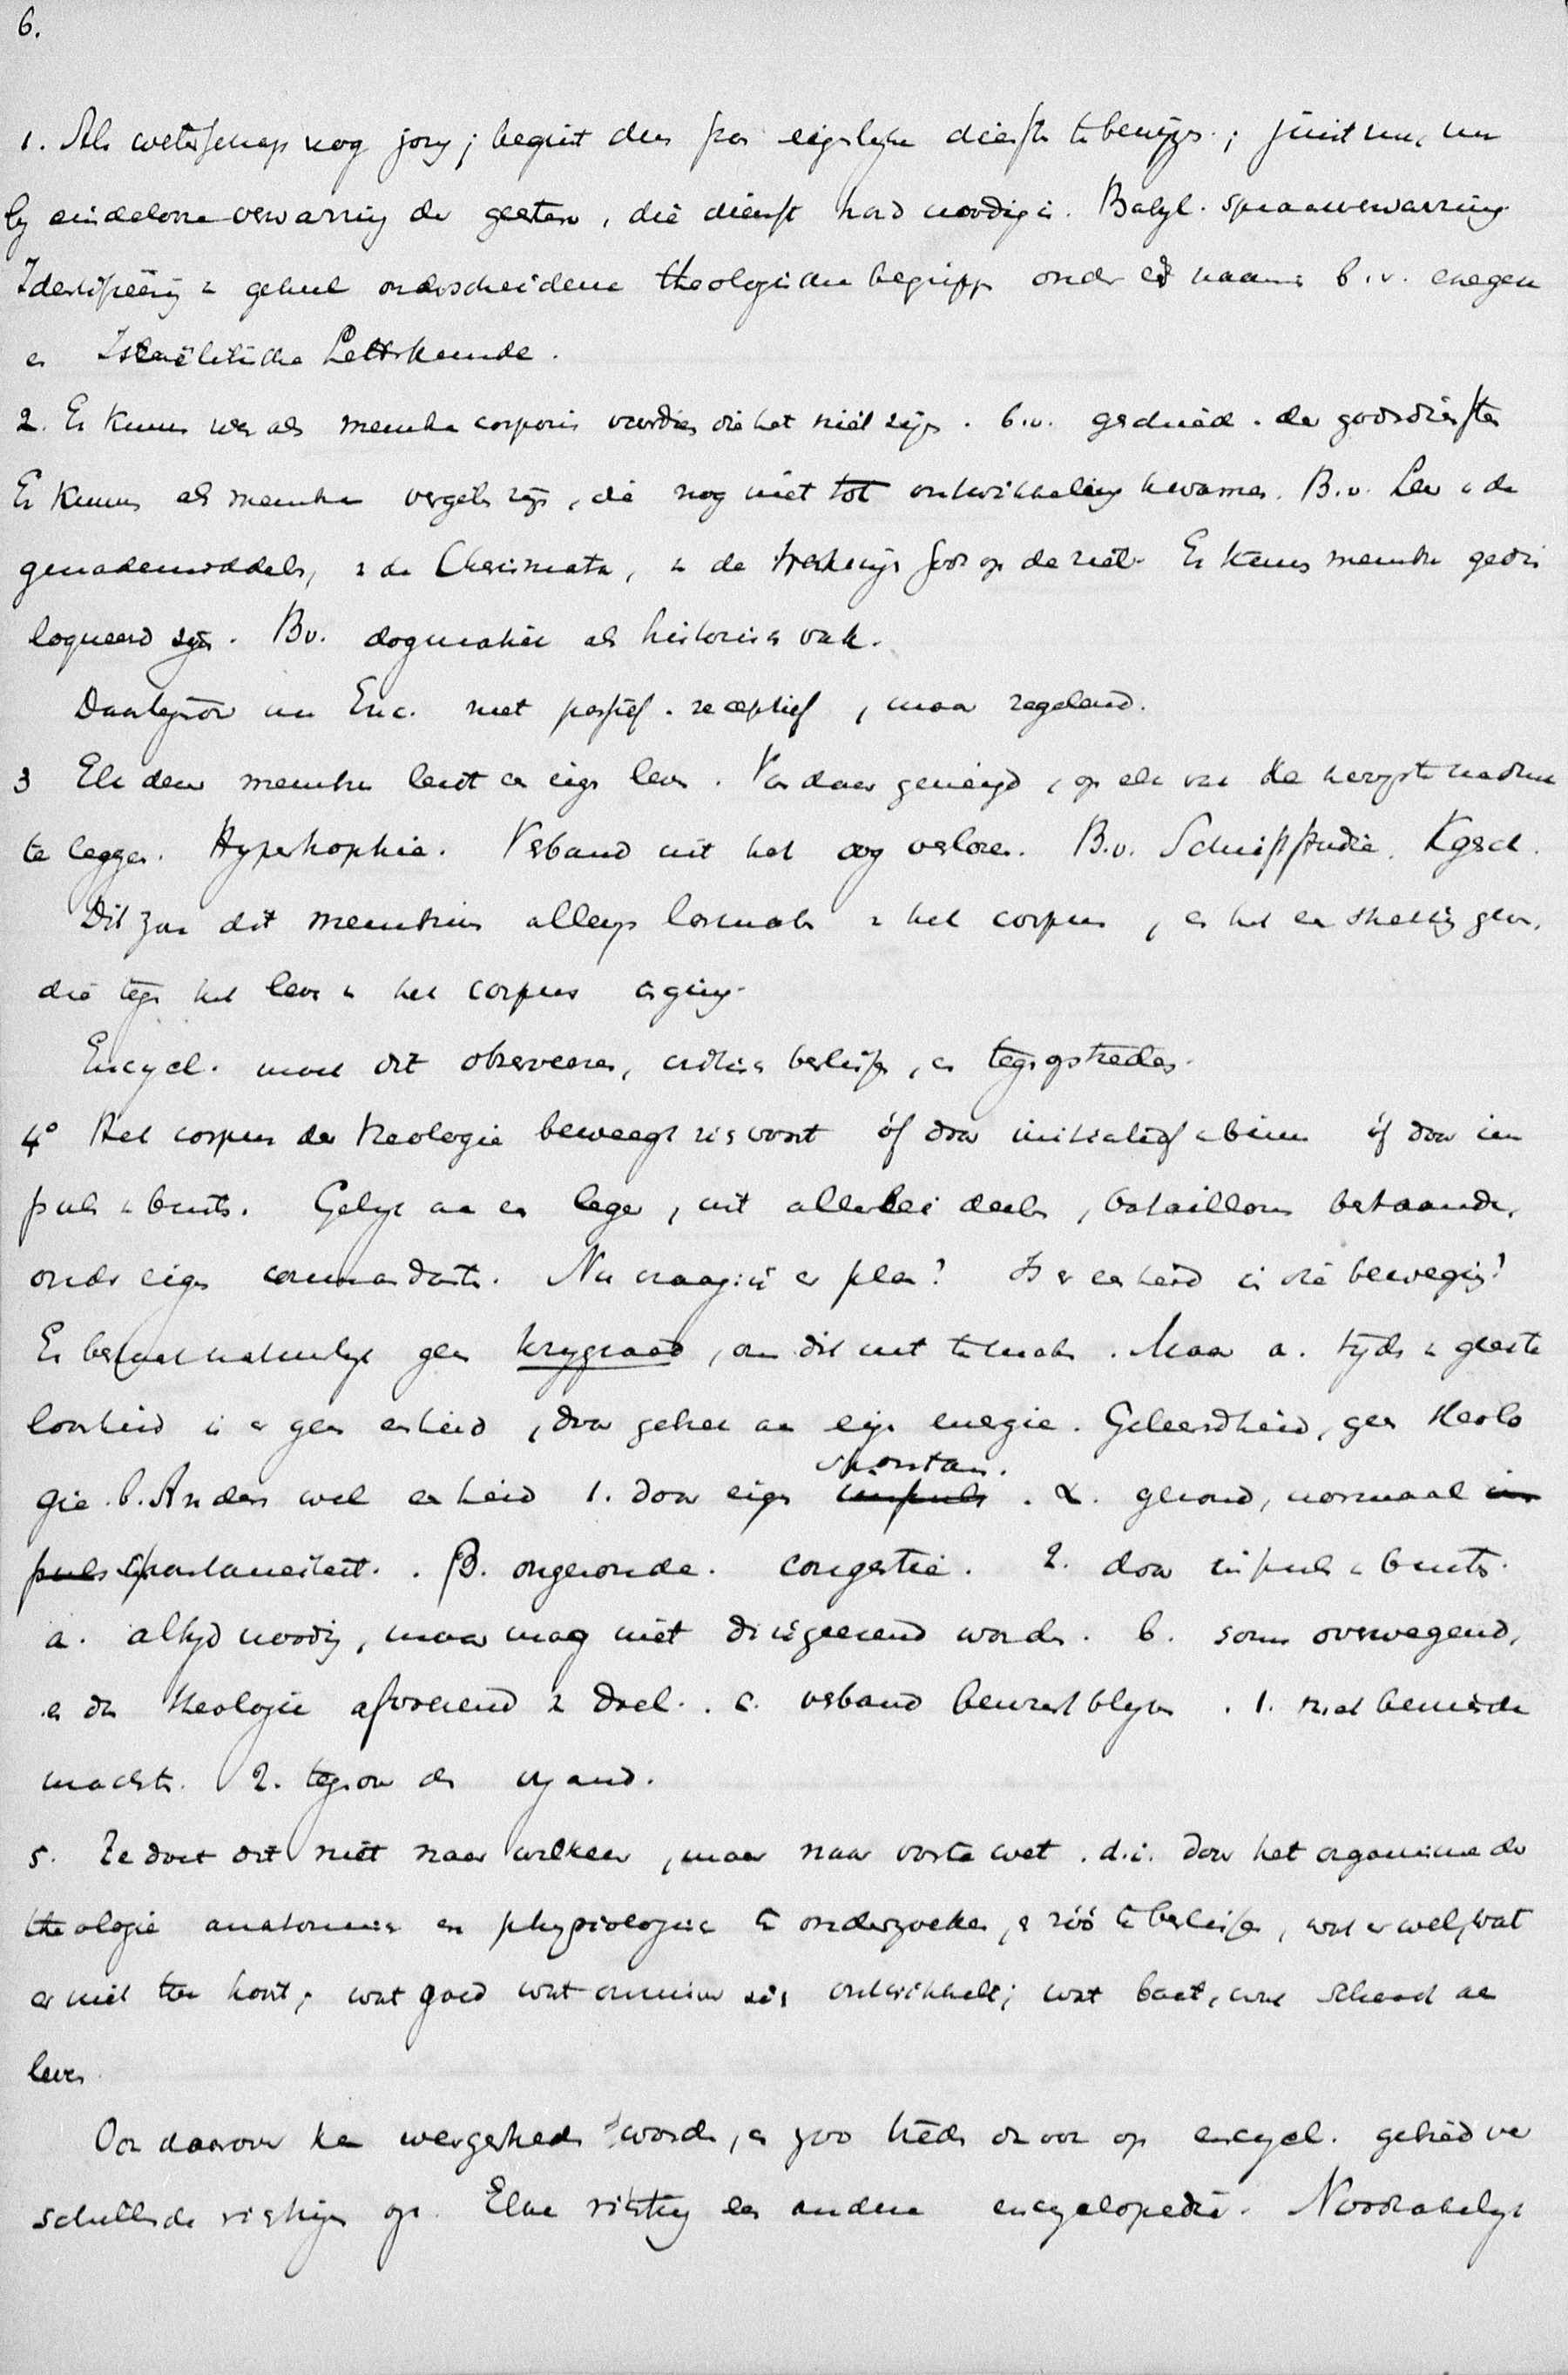 6.
1. Als wetenschap nog jong; begint dus pas eigenlijke diensten te bewijzen; juist nu, nu
bij eindelooze verwarring der geesten, die dienst hard noodig is. Babyl. spraakverwarring
Identifieëring v. geheel onderscheidene theologische begrippen onder één naam b.v. exegese
en Israëlitische Letterkunde.
2. Er kunnen wel als membra corporis voordoen die het niet zijn. b.v. geschied. der godsdiensten
Er kunnen als membra vergeten zijn, die nog niet tot ontwikkeling kwamen. B.v. Leer v. de
genademiddelen, v. de Charismata, v. de werking Gods op de ziel. Er kunnen membra gedis
loqueerd zijn. Bv. dogmatiek als historisch vak.
Daartegenover nu Enc. niet passief-receptief, maar regelend.
3 Elk dezer membra leidt een eigen leven. Van daar geneigd, op elk van de hoogste nadruk
te leggen. Hypertrophie. Verband uit het oog verloren. B.v. Schriftstudie. Kgsch.
Dit zou dit membrum allengs losmaken v. het corpus, en het een strekking geven,
die tegen het leven v. het corpus inging.
Encycl. moet dit observeeren, critisch beslissen, en tegengaan
4° Het corpus der theologie beweegt zich voort óf door initiatief v. binnen óf door im
puls v. buiten. Gelijk aan een leger, uit allerlei deelen, bataillons bestaande,
onder eigen commandanten. Nu vraag: is er plan? Is er eenheid in die beweging?
Er bestaat natuurlijk geen krygsraad, om dit uit te maken. Maar a. tijden v. geeste
loosheid is er geen eenheid, door gebrek aan eigen energie. Geleerdheid, geen theolo
gie. b. Anders wel eenheid 1. door eigen impuls spontan. . α. gezond, normaal im
puls spontaneiteit. . β. ongezonde. congestie. 2. door impuls v. buiten.
a. altijd noodig, maar mag niet dirigeerend worden. b. soms overwegend,
en de theologie afvoerend v. doel. . c. verband bewust blyven. 1. met bevriende
machten. 2. tegenover den vyand.
5. Ze doet dit niet naar willekeur, maar naar vaste wet. d.i. door het organisme der
theologie anatomisch en physiologisch te onderzoeken, en zóó te beslissen, wat er wel, wat
er niet toe hoort; wat goed wat onzuiver zich ontwikkelt; wat baat, wat schaadt aan
leven
Ook daarover kan weer gestreden worden, en zoo treden er ook op encycl. gebied ver
schillende richtingen op. Elke richting een andere encyclopedie. Noodzakelijk